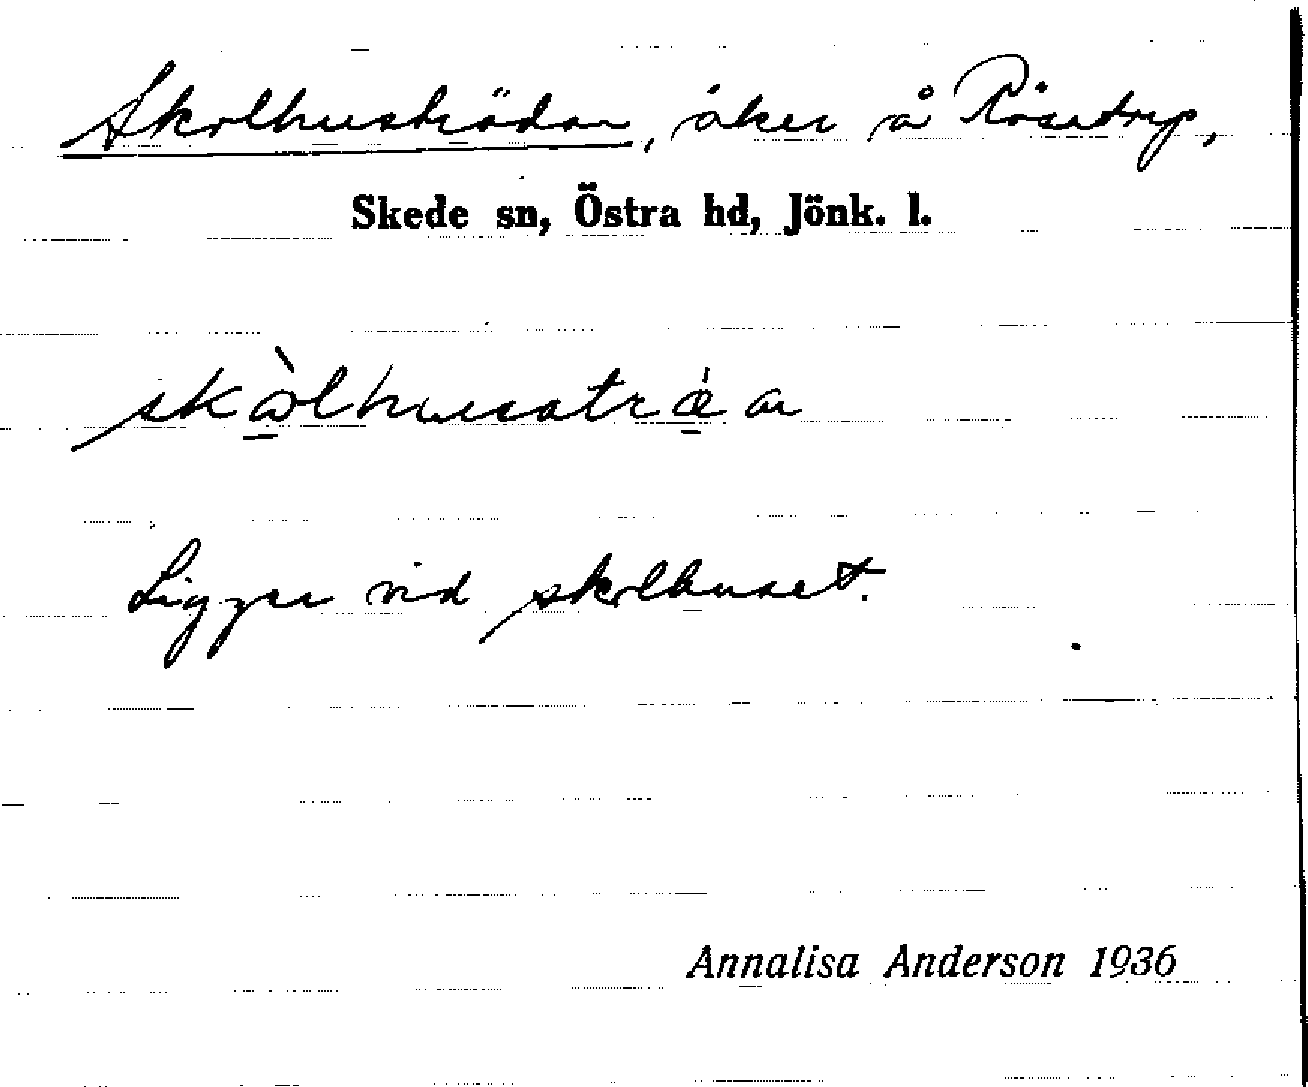 Skolhusträdan, åker å Rösatorp,
Skede sn, Östra hd, Jönk. l.
Ligger vid skolhuset.
Annalisa Anderson 1936